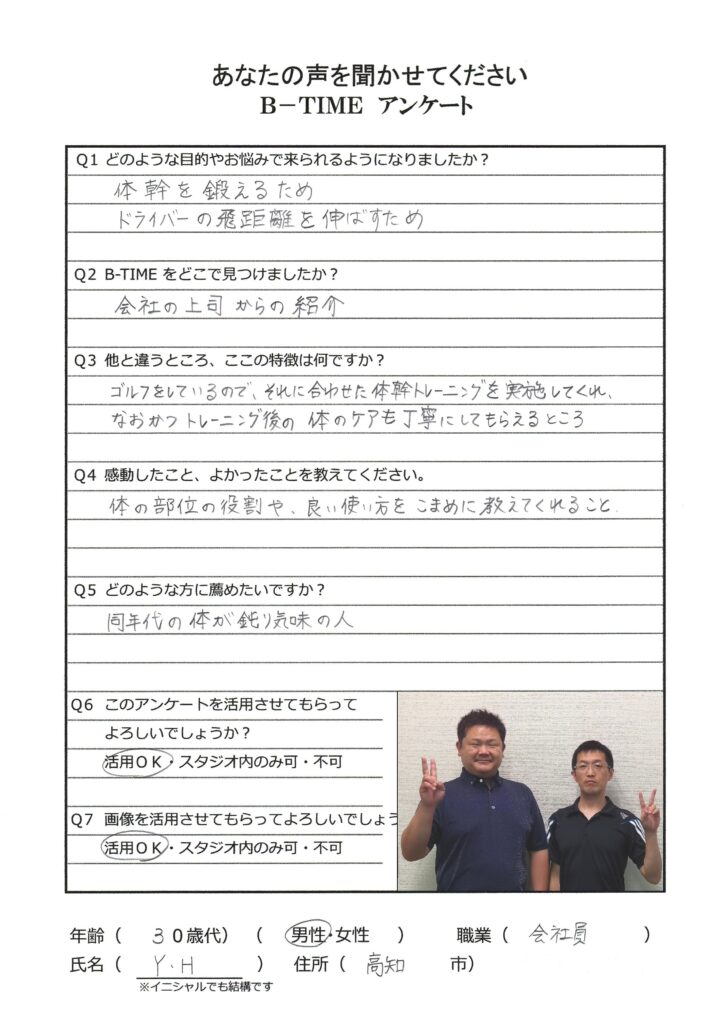 あなたの声を聞かせてください
B－TIME アンケート
Q1 どのような目的やお悩みで来られるようになりましたか？
体幹を鍛えるため
ドライバーの飛距離を伸ばすため
Q2 B-TIME をどこで見つけましたか？
会社の上司からの紹介
Q3 他と違うところ、ここの特徴は何ですか？
ゴルフをしているので、それに合わせた体幹トレーニングを実施してくれ、
なおかつトレーニング後の体のケアも丁寧にしてもらえるところ
Q4 感動したこと、よかったことを教えてください。
体の部位の役割や、良い使い方をこまめに教えてくれること.
Q5 どのような方に薦めたいですか？
同年代の体が鈍り気味の人
Q6 このアンケートを活用させてもらって
よろしいでしょうか？
活用OK・スタジオ内のみ可・不可
Q7 画像を活用させてもらってよろしいでしょう
活用OK・スタジオ内のみ可・不可
年齢（ 30歳代）（ 男性・女性 ） 職業（ 会社員 ）
氏名（ Y.H ） 住所（ 高知 市）
※イニシャルでも結構です